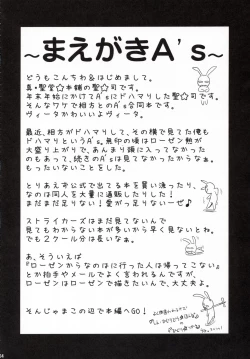 ～まえがきA's～
どうもこんちわ＆はじめまして。
真・聖堂☆本舗の聖☆司です。
年末年始にかけてA'sにドハマりした聖☆司です。
そんなワケで相方とのA's合同本です。
ヴィータかわいいよヴィータ。
最近、相方がドハマりして、その横で見てた俺も
ドハマりというA's。無印の頃はローゼン熱が
大盛り上がりで、あんまり頭に入ってなかった
のもあって、続きのA'sは見てなかったからなぁ。
もったいないことをした。
とりあえず公式で出てる本を買い漁ったり、
なのは同人を大量に通販したりした！
まだまだ足りない！愛が足りないぜーーー♪
ストライカーズはまだ見てないんで
見てもわからない本が多いから早く見ないとね。
でも２クール分は長いなぁ。
あ、そういえば
『ローゼンからなのはに行った人は帰ってこない』
とか拍手やメールでよく言われるんですが、
ローゼンはローゼンで描きたいんで、大丈夫よ。
そんじゃまこの辺で本編へGO！